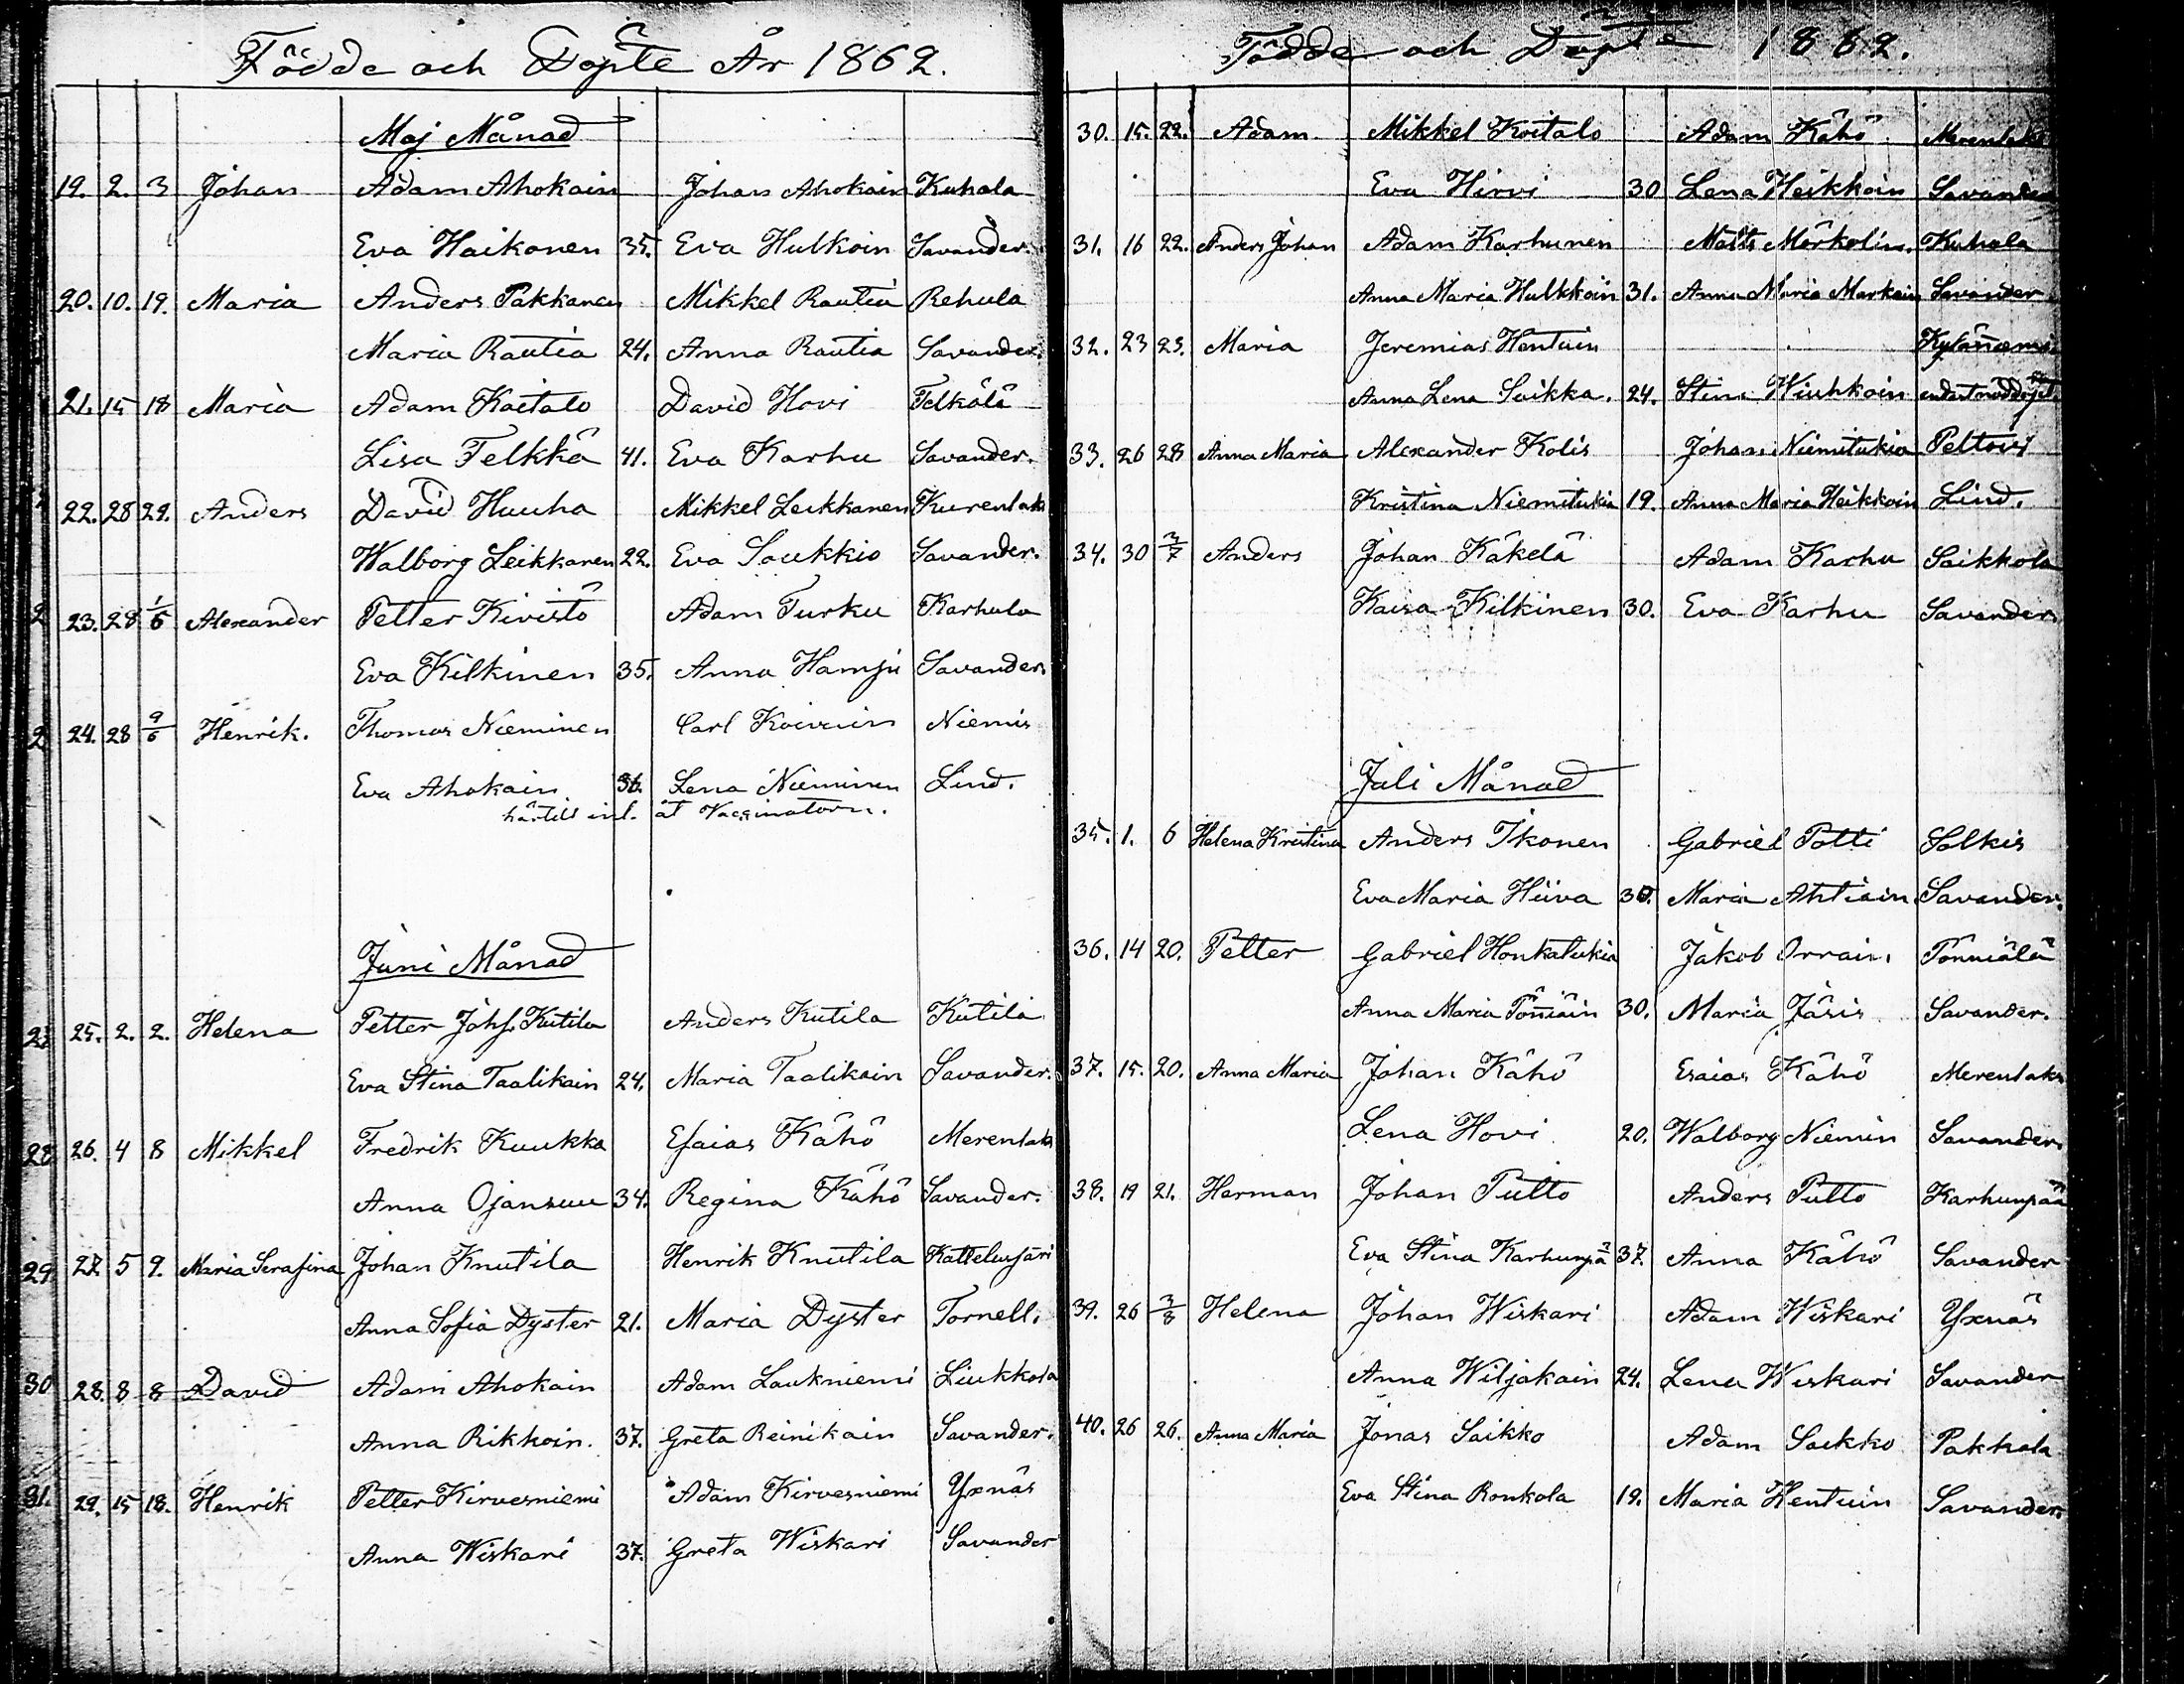 Födde och Döpte År 1862.
Maj Månad
19. 2. 3 Johan Adam Ahokain Johan Ahokain Kuhala
Eva Haikonen 35. Eva Hulkoin Savander.
20. 10. 19. Maria Anders Pakkanen Mikkel Rautia Rehula
Maria Rautia 24. Anna Rautia Savander.
21. 15 18 Maria Adam Koitalo David Hovi Telkälä
Lisa Telkkä 41. Eva Karhu Savander.
22. 28 29. Anders David Huuha Mikkel Leikkanen Kurenlaks
Walborg Leikkanen 22. Eva Saukkio Savander.
23. 28 1/6 Alexander Petter Kivistö Adam Turku Karhula
Eva Kilkinen 35. Anna Hamju Savander.
24. 28 9/6 Henrik. Thomas Nieminen Carl Koivuin Niemis
Eva Ahokain 36. Lena Nieminen Lind.
härtils inl. åt Vaccinatorn.
Juni Månad
25. 2. 2. Helena Petter Johs. Kutila Anders Kutila Kutila
Eva Stina Taalikain 24. Maria Taalikain Savander.
28 26. 4 8 Mikkel Fredrik Kuukka Esaias Kähö Merenlaks
Anna Ojansuu 34. Regina Kähö Savander.
29 27. 5 9. Maria Serafina Johan Knutila Henrik Knutila Kattelusjäri
Anna Sofia Dyster 21. Maria Dyster Tornell.
30 28. 8 8 David Adam Ahokain Adam Laukniemi Liukkola
Anna Rikkoin. 37. Greta Reinikain Savander.
31. 29. 15 18. Henrik Petter Kirvesniemi Adam Kirvesniemi Yxnäs
Anna Wiskari 37. Greta Wiskari Savander
Födde och Döpte 1862.
30. 15. 22. Adam Mikkel Koitalo Adam Kähö Merenlaks
Eva Hirvi 30 Lena Heikkoin Savander
31. 16 22. Anders Johan Adam Karhunen Matts Mörkolin. Kuhala
Anna Maria Hulkkoin 31. Anna Maria Markain Savander.
32. 23 23. Maria Jeremias Hentuin Kylänemi
Anna Lena Saikka. 24. Stina Wiuhkoin endast nöddöpt.
33. 26 28 Anna Maria Alexander Kolis Johan Niemitukia Peltois
Kristina Niemitukia 19. Anna Maria Heikkoin Lind.
34. 30 3/7 Anders Johan Käkelä Adam Karhu Saikkola
Kaisa Kilkinen 30. Eva Karhu Savander.
Juli Månad
35. 1. 6 Helena Kristina Anders Ikonen Gabriel Potti Solkis
Eva Maria Hiiva 30. Maria Ahtiain Savander.
36. 14 20. Petter Gabriel Honkatukia Jakob Orrain. Pönniälä
Anna Maria Pöniäin 30. Maria Jäsis Savander.
37. 15. 20. Anna Maria Johan Kähö Esaias Kähö Merenlaks
Lena Hovi 20. Walborg Niemin Savander.
38. 19 21. Herman Johan Putto Anders Putto Karhunpää
Eva Stina Karhunpä 37. Anna Kähö Savander
39. 26 3/8 Helena Johan Wiskari Adam Wiskari Yxnäs
Anna Wiljakain 24. Lena Wiskari Savander
40. 26 26. Anna Maria Jonas Saikko Adam Saikko Pakkala
Eva Stina Ronkola 19. Maria Hentuin Savander.